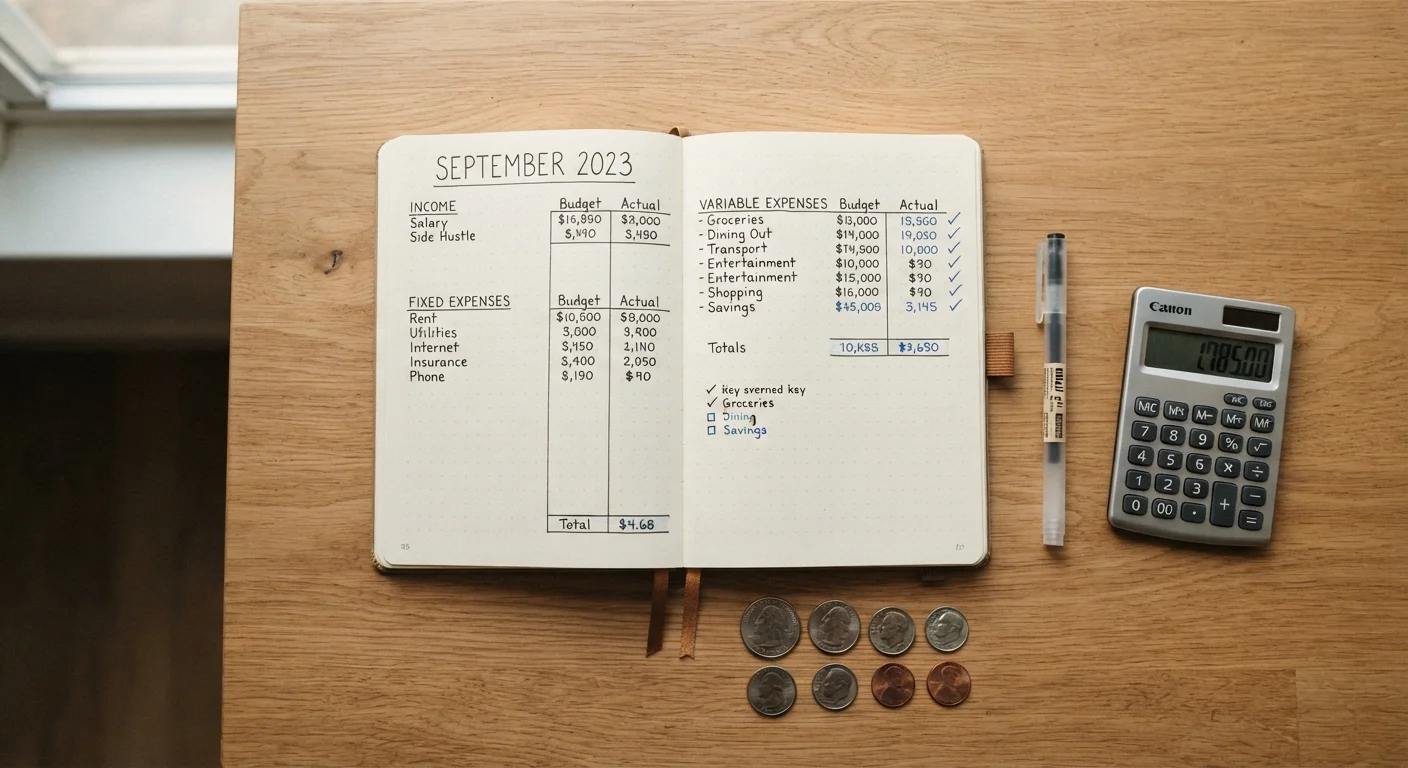 SEPTEMBER 2023
INCOME Budget Actual
Salary $16,890 $3,000
Side Hustle 3,490
FIXED EXPENSES Budget Actual
Rent $10,500 $8,000
Utilities 3,600
Internet
Insurance $,400 2,050
Phone $,190 $90
Total $4.68
VARIABLE EXPENSES Budget Actual
- Groceries $13,000 ✓
- Dining Out $14,000 ✓
- Transport 10,000 ✓
- Entertainment $10,000 $90 ✓
- Entertainment $15,000 $90 ✓
- Shopping $16,000 $90 ✓
- Savings 3,145 ✓
Totals
✓ key sverned key
✓ Groceries
☐ Dining
☐ Savings
Canon
7 8 9 % √
4 5 6 X ÷
1 2 3 + −
0 00 . =